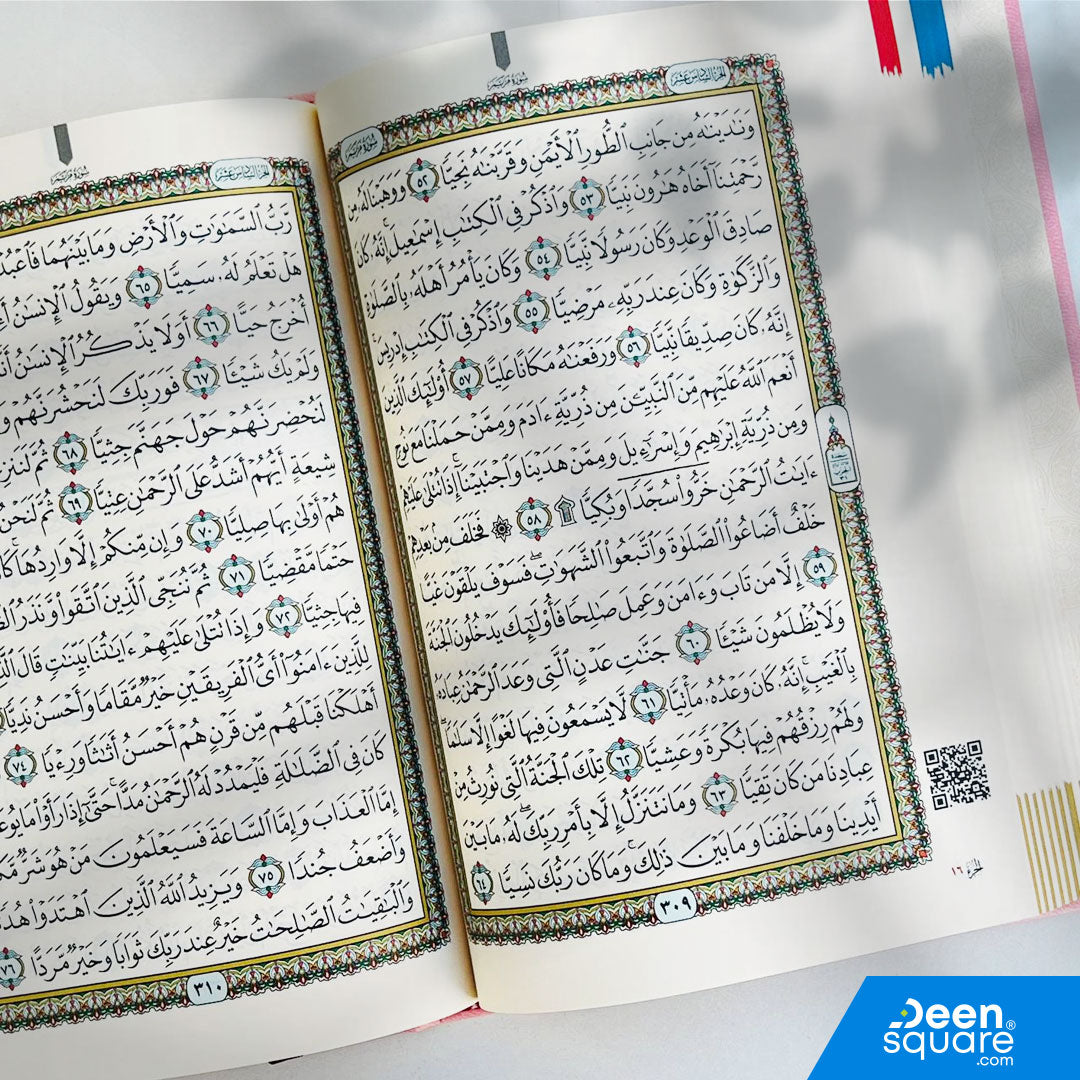 سُورَةُ مَرْيَمَ
الجُزْءُ السَّادِسَ عَشَرَ
سُورَةُ مَرْيَمَ
وَنَٰدَيْنَٰهُ مِن جَانِبِ ٱلطُّورِ ٱلْأَيْمَنِ وَقَرَّبْنَٰهُ نَجِيًّا ٥٢ وَوَهَبْنَا لَهُۥ مِن
رَّحْمَتِنَآ أَخَاهُ هَٰرُونَ نَبِيًّا ٥٣ وَٱذْكُرْ فِى ٱلْكِتَٰبِ إِسْمَٰعِيلَ ۚ إِنَّهُۥ كَانَ
صَادِقَ ٱلْوَعْدِ وَكَانَ رَسُولًا نَّبِيًّا ٥٤ وَكَانَ يَأْمُرُ أَهْلَهُۥ بِٱلصَّلَوٰةِ
وَٱلزَّكَوٰةِ وَكَانَ عِندَ رَبِّهِۦ مَرْضِيًّا ٥٥ وَٱذْكُرْ فِى ٱلْكِتَٰبِ إِدْرِيسَ ۚ
إِنَّهُۥ كَانَ صِدِّيقًا نَّبِيًّا ٥٦ وَرَفَعْنَٰهُ مَكَانًا عَلِيًّا ٥٧ أُو۟لَٰٓئِكَ ٱلَّذِينَ
أَنْعَمَ ٱللَّهُ عَلَيْهِم مِّنَ ٱلنَّبِيِّـۧنَ مِن ذُرِّيَّةِ ءَادَمَ وَمِمَّنْ حَمَلْنَا مَعَ نُوحٍ
وَمِن ذُرِّيَّةِ إِبْرَٰهِيمَ وَإِسْرَٰٓءِيلَ وَمِمَّنْ هَدَيْنَا وَٱجْتَبَيْنَآ ۚ إِذَا تُتْلَىٰ عَلَيْهِمْ
ءَايَٰتُ ٱلرَّحْمَٰنِ خَرُّوا۟ سُجَّدًا وَبُكِيًّا ۩ ٥٨ ۞ فَخَلَفَ مِنۢ بَعْدِهِمْ
خَلْفٌ أَضَاعُوا۟ ٱلصَّلَوٰةَ وَٱتَّبَعُوا۟ ٱلشَّهَوَٰتِ ۖ فَسَوْفَ يَلْقَوْنَ غَيًّا
٥٩ إِلَّا مَن تَابَ وَءَامَنَ وَعَمِلَ صَٰلِحًا فَأُو۟لَٰٓئِكَ يَدْخُلُونَ ٱلْجَنَّةَ
وَلَا يُظْلَمُونَ شَيْـًٔا ٦٠ جَنَّٰتِ عَدْنٍ ٱلَّتِى وَعَدَ ٱلرَّحْمَٰنُ عِبَادَهُۥ
بِٱلْغَيْبِ ۚ إِنَّهُۥ كَانَ وَعْدُهُۥ مَأْتِيًّا ٦١ لَّا يَسْمَعُونَ فِيهَا لَغْوًا إِلَّا سَلَٰمًا ۖ
وَلَهُمْ رِزْقُهُمْ فِيهَا بُكْرَةً وَعَشِيًّا ٦٢ تِلْكَ ٱلْجَنَّةُ ٱلَّتِى نُورِثُ مِنْ
عِبَادِنَا مَن كَانَ تَقِيًّا ٦٣ وَمَا نَتَنَزَّلُ إِلَّا بِأَمْرِ رَبِّكَ ۖ لَهُۥ مَا بَيْنَ
أَيْدِينَا وَمَا خَلْفَنَا وَمَا بَيْنَ ذَٰلِكَ ۚ وَمَا كَانَ رَبُّكَ نَسِيًّا ٦٤
٣٠٩
الجزء ١٦
سُورَةُ مَرْيَمَ
الجُزْءُ السَّادِسَ عَشَرَ
رَّبُّ ٱلسَّمَٰوَٰتِ وَٱلْأَرْضِ وَمَا بَيْنَهُمَا
هَلْ تَعْلَمُ لَهُۥ سَمِيًّا ٦٥ وَيَقُولُ ٱلْإِنسَٰنُ
أُخْرَجُ حَيًّا ٦٦ أَوَلَا يَذْكُرُ ٱلْإِنسَٰنُ
وَلَمْ يَكُ شَيْـًٔا ٦٧ فَوَرَبِّكَ لَنَحْشُرَنَّهُمْ
لَنُحْضِرَنَّهُمْ حَوْلَ جَهَنَّمَ جِثِيًّا ٦٨ ثُمَّ
شِيعَةٍ أَيُّهُمْ أَشَدُّ عَلَى ٱلرَّحْمَٰنِ عِتِيًّا ٦٩ ثُمَّ
هُمْ أَوْلَىٰ بِهَا صِلِيًّا ٧٠ وَإِن مِّنكُمْ إِلَّا وَارِدُهَا ۚ
حَتْمًا مَّقْضِيًّا ٧١ ثُمَّ نُنَجِّى ٱلَّذِينَ ٱتَّقَوا۟ وَّنَذَرُ
فِيهَا جِثِيًّا ٧٢ وَإِذَا تُتْلَىٰ عَلَيْهِمْ ءَايَٰتُنَا بَيِّنَٰتٍ قَالَ
لِلَّذِينَ ءَامَنُوٓا۟ أَىُّ ٱلْفَرِيقَيْنِ خَيْرٌ مَّقَامًا وَأَحْسَنُ نَدِيًّا
أَهْلَكْنَا قَبْلَهُم مِّن قَرْنٍ هُمْ أَحْسَنُ أَثَٰثًا وَرِءْيًا ٧٤
كَانَ فِى ٱلضَّلَٰلَةِ فَلْيَمْدُدْ لَهُ ٱلرَّحْمَٰنُ مَدًّا ۚ حَتَّىٰٓ إِذَا رَأَوْا۟ مَا
إِمَّا ٱلْعَذَابَ وَإِمَّا ٱلسَّاعَةَ فَسَيَعْلَمُونَ مَنْ هُوَ شَرٌّ
وَأَضْعَفُ جُندًا ٧٥ وَيَزِيدُ ٱللَّهُ ٱلَّذِينَ ٱهْتَدَوْا۟
وَٱلْبَٰقِيَٰتُ ٱلصَّٰلِحَٰتُ خَيْرٌ عِندَ رَبِّكَ ثَوَابًا وَخَيْرٌ مَّرَدًّا ٧٦
٣١٠
Deen
square®
.com